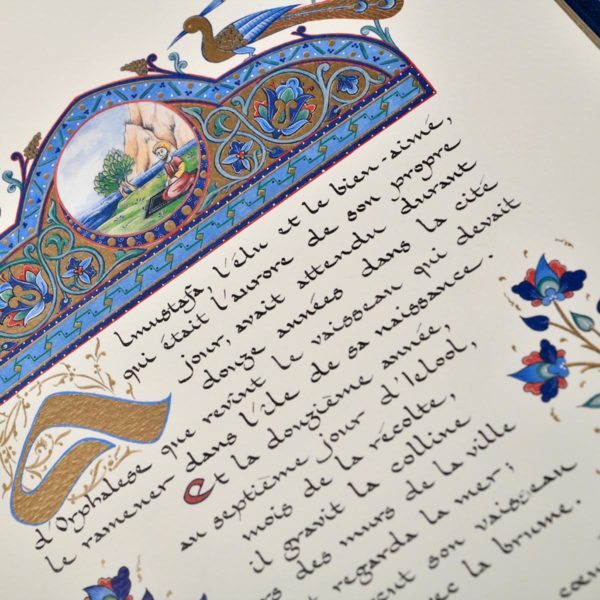 Almustafa, l'élu et le bien-aimé,
qui était l'aurore de son propre
jour, avait attendu durant
douze années dans la cité
d'Orphalese que revint le vaisseau qui devait
le ramener dans l'île de sa naissance.
et la douzième année,
au septième jour d'Ielool,
mois de la récolte,
il gravit la colline
des murs de la ville
et regarda la mer;
son vaisseau
la brume.